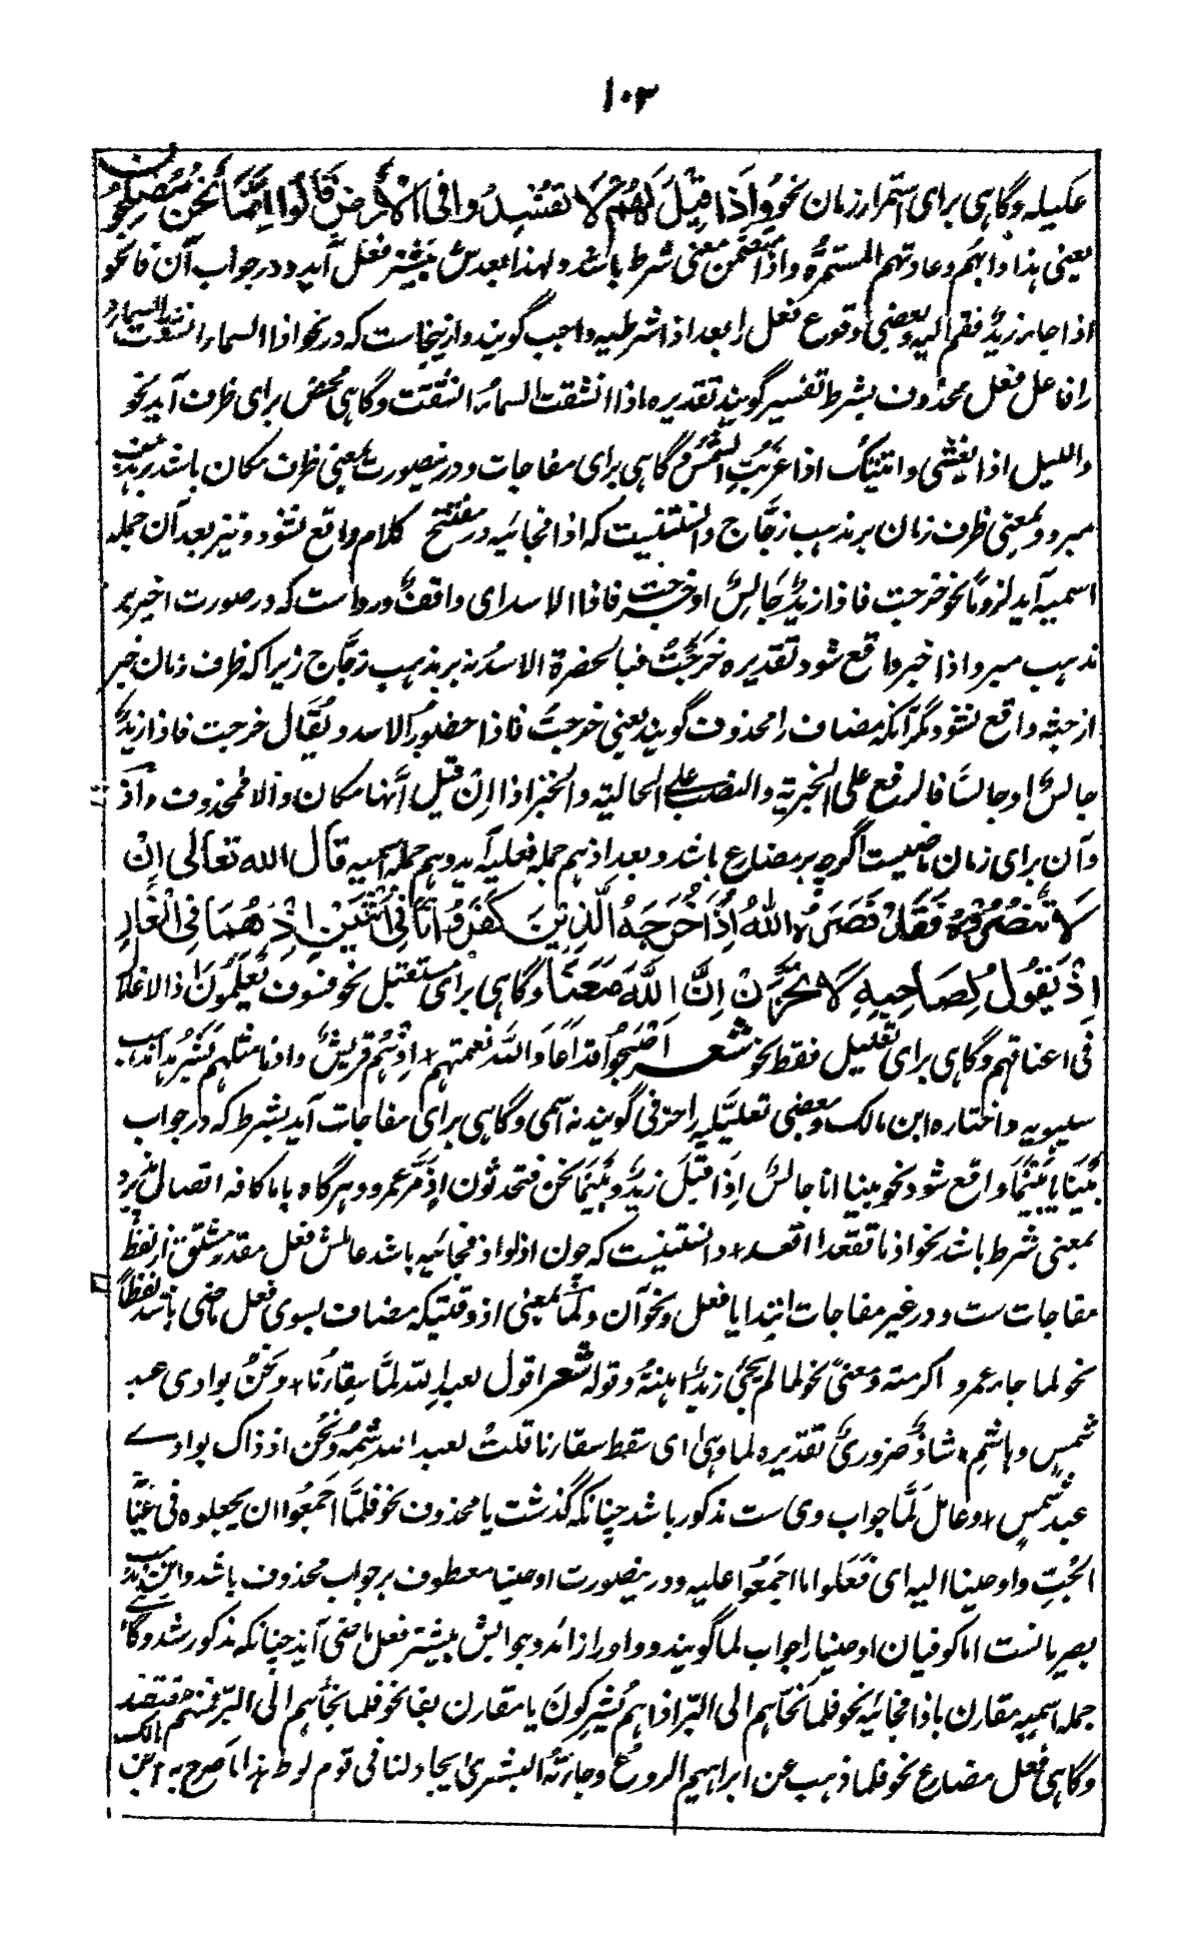 ۱۰۳
علیله و گاهی برای استمرار زمان نحو وَاِذَا قِیْلَ لَهُمْ لَا تُفْسِدُوا فِی الْاَرْضِ قَالُوا اِنَّمَا نَحْنُ مُصْلِحُونَ
یعنی هذا دابهم و عادتهم المستمرة و اذا متضمن معنی شرط باشد و لهذا بعدش بیشتر فعل آید و در جواب آن فا نحو
اذا جاء زیدٌ فقم الیه و بعضی وقوع فعل را بعد اذا شرطیه واجب گویند و ازینجاست که در نحو اذا السماء انشقت السماء
را فاعل فعل محذوف بشرط تفسیر گویند تقدیره اذا انشقت السماء انشقت و گاهی محض برای ظرف آید نحو
واللیل اذا یغشی و اتیتک اذا غربت الشمس و گاهی برای مفاجات و درینصورت بمعنی ظرف مکان باشد بر مذهب
مبرد و بمعنی ظرف زمان بر مذهب زجّاج دانستنیست که اذا فجائیه در مفتتح کلام واقع نشود و نیز بعد آن جمله
اسمیه آید لزوماً نحو خرجت فاذا زیدٌ جالسٌ او خرجت فاذا الاسد ای واقفٌ و رواست که در صورت اخیر بر
مذهب مبرد اذا خبر واقع شود تقدیره خرجتُ فبالحضرة الاسدُ نه بر مذهب زجّاج زیرا که ظرف زمان خبر
از جثه واقع نشود مگر آنکه مضاف را محذوف گویند یعنی خرجت فاذا حضور الاسد و یُقال خرجت فاذا زیدٌ
جالسٌ او جالسًا فالرفع علی الخبریة والنصب علی الحالیة والخبر اذا اِن قیل انّها مکان والا فمحذوف و اذ
و آن برای زمان ماضیست اگرچه بر مضارع باشد و بعد اذ هم جمله فعلیه آید و هم جمله اسمیه قال الله تعالی اِنْ
لَا تَنْصُرُوْهُ فَقَدْ نَصَرَهُ اللهُ اِذْ اَخْرَجَهُ الَّذِیْنَ کَفَرُوْا ثَانِیَ اثْنَیْنِ اِذْ هُمَا فِی الْغَارِ
اِذْ یَقُوْلُ لِصَاحِبِهِ لَا تَحْزَنْ اِنَّ اللهَ مَعَنَا و گاهی برای مستقبل نحو فسوف یَعْلَمُونَ اذ الاغلال
فی اعناقهم و گاهی برای تعلیل فقط نحو شعر اَصْبَحُوا قد اَعَادَ اللهُ نعمتهم ٭ اِذْ هُم قریشٌ و اذ ما مثلهم بَشَرُ هذا مذهب
سیبویه و اختاره ابن مالک و بعضی تعلیلیه را حرفی گویند نه اسمی و گاهی برای مفاجات آید بشرط که در جواب
بَیْنَا یا بَیْنَمَا واقع شود نحو بینا انا جالسٌ اِذ اَقْبَلَ زیدٌ و بَیْنَمَا نحن نتحدثون اِذْ مَرَّ عمرو و هرگاه با ما کافه اتصال پذیرد
بمعنی شرط باشد نحو اذ ما تقعد اقعد ٭ دانستنیست که چون اذا و اذ فجائیه باشد عاملش فعل مقدر مشتق از لفظ
مفاجات ست و در غیر مفاجات ابتدا یا فعل و نحو آن و لَمَّا بمعنی اذ وقتیکه مضاف بسوی فعل ماضی باشد لفظاً
نحو لما جاء عمرو اکرمته و معنیً نحو لما لم یجئ زیدٌ اهنتهُ و قوله شعر اقول لعبد الله لمّا سِقاؤنا ٭ و نَحْنُ بوادی عبد
شمسٍ و هاشمِ ٭ شاذٌ ضروریٌ تقدیره لما وهی ای سقط سقاؤنا قلت لعبد الله شِمْهُ و نحن اذ ذاک بوادی
عبد شمسٍ ٭ و عامل لَمَّا جواب وی ست مذکور باشد چنانکه گذشت یا محذوف نحو فلمّا اجمعوا ان یجعلوه فی غیابة
الجبّ و اوحینا الیه ای فَعَلوا ما اجمعوا علیه و درینصورت اوحینا معطوف بر جواب محذوف باشد و این مذهب
بصریانست اما کوفیان اوحینا را جواب لما گویند و واو را زائد و جوابش بیشتر فعل ماضی آید چنانکه مذکور شد و گاه
جمله اسمیه مقارن باذا فجائیه نحو فلما نجّاهم الی البرّ اذا هم یشرکون یا مقارن بفا نحو فلما نجّاهم الی البرّ فمنهم مقتصد
و گاهی فعل مضارع نحو فلما ذهب عن ابراهیم الروع و جاءته البشری یجادلنا فی قوم لوط هذا ما صرح به ابن مالک